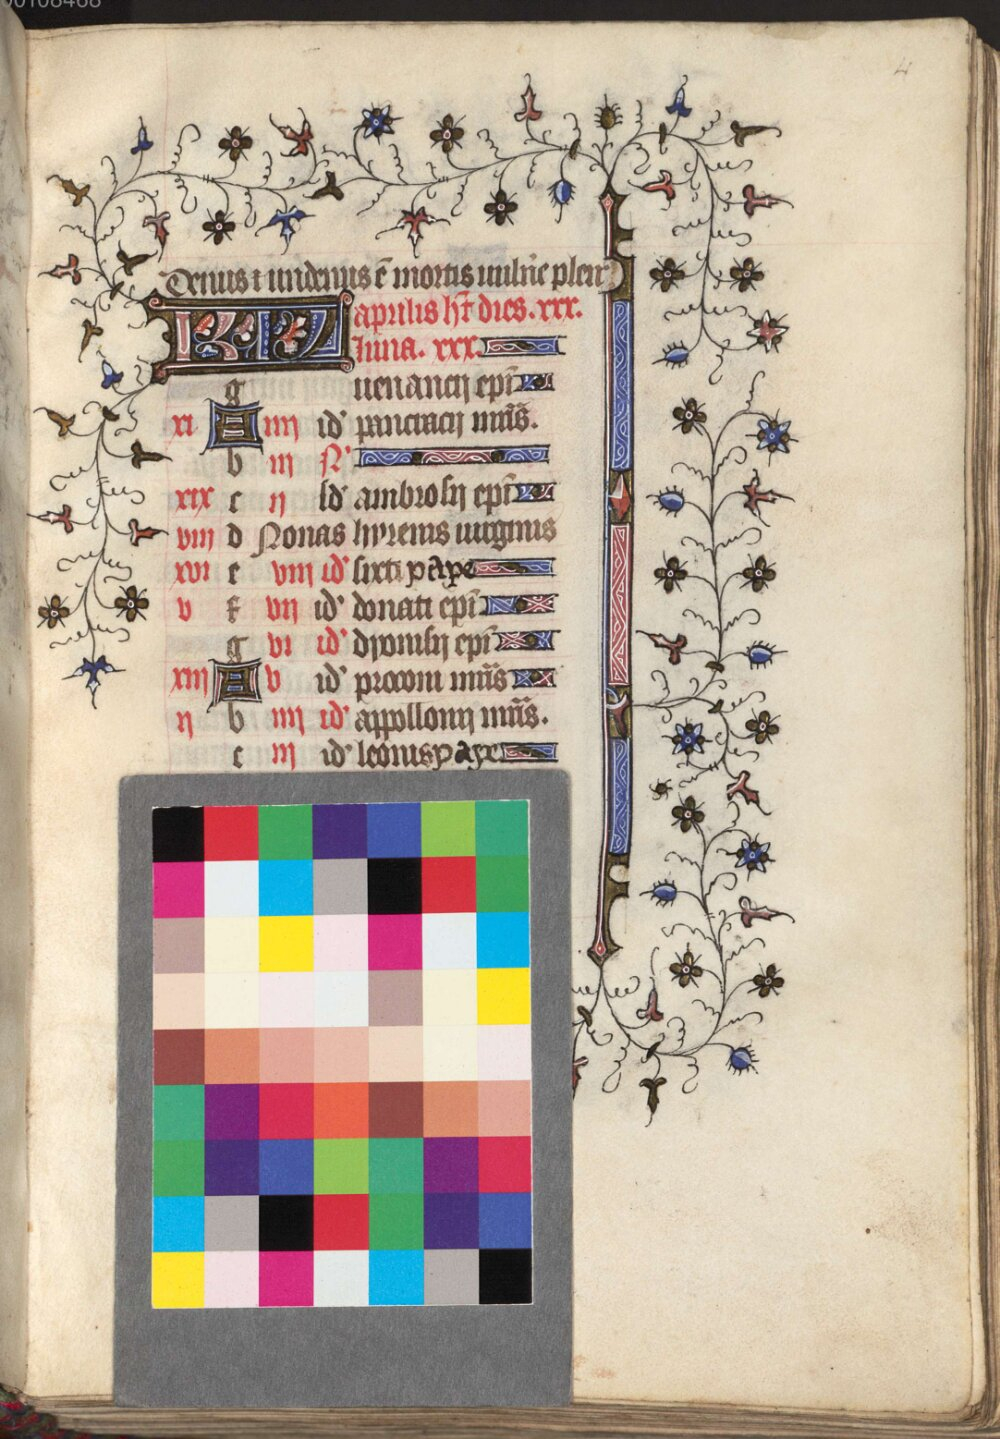 00108468
4
Denus ⁊ undenus ē mortis uulne plen
KL aprilis hт̄ dies. xxx.
luna. xxx.
g uenancij epı̄
xi A iiij id' pancracij mr̄is.
b iij N'
xix c ij id' ambrosij epı̄
viij d Nonas hyrenis uirginis
xvi e viij id' sixti pape
v f vij id' donati epı̄
g vi id' dyonisij epı̄
xiij A v id' procori mr̄is
ij b iiij id' appollonij mr̄is.
c iij id' leonis pape